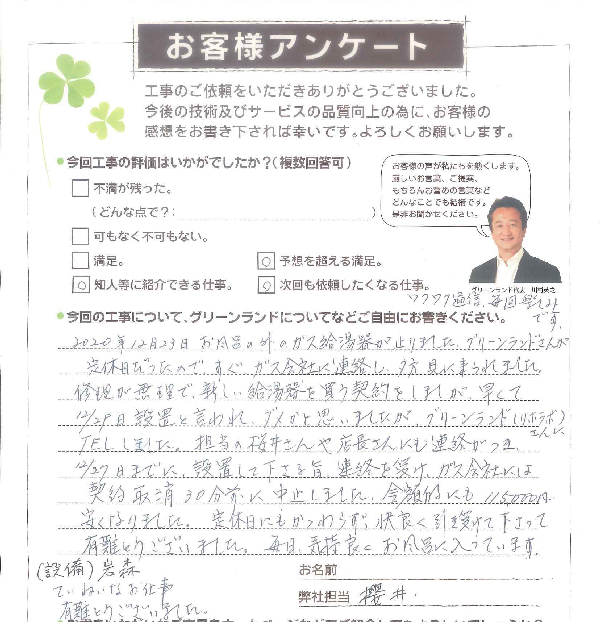 お客様アンケート
工事のご依頼をいただきありがとうございました。
今後の技術及びサービスの品質向上の為に、お客様の
感想をお書き下されば幸いです。よろしくお願いします。
今回工事の評価はいかがでしたか？（複数回答可）
不満が残った。
（どんな点で？：　）
可もなく不可もない。
満足。
○ 予想を超える満足。
○ 知人等に紹介できる仕事。
○ 次回も依頼したくなる仕事。
お客様の声が私たちを熱くします。
厳しいお言葉、ご提案、
もちろんお誉めの言葉など
どんなことでも結構です。
是非お聞かせください。
グリーンランド代表
ワクワク通信、毎回楽しみ
です。
今回の工事について、グリーンランドについてなどご自由にお書きください。
2020年12月23日 お風呂の外のガス給湯器が止りました。グリーンランドさんが
定休日だったので、すぐ、ガス会社に連絡し、夕方見に来られました。
修理が無理で、新しい給湯器を買う契約をしましたが、早くて
12/29日設置と言われ、ダメかと思いましたが、グリーンランド(リホラボ)さんに
TELしました。担当の桜井さんや店長さんにも連絡がつき、
12/27日までに、設置して下さる旨、連絡を受け、ガス会社には
契約取消30分前に中止しました。金額的にも
安くなりました。定休日にもかかわらず、快良く引き受けて下さって
有難とうございました。毎日、気持良くお風呂に入っています。
(設備) 岩森
ていねいなお仕事
有難とうございました。
お名前
弊社担当 櫻井